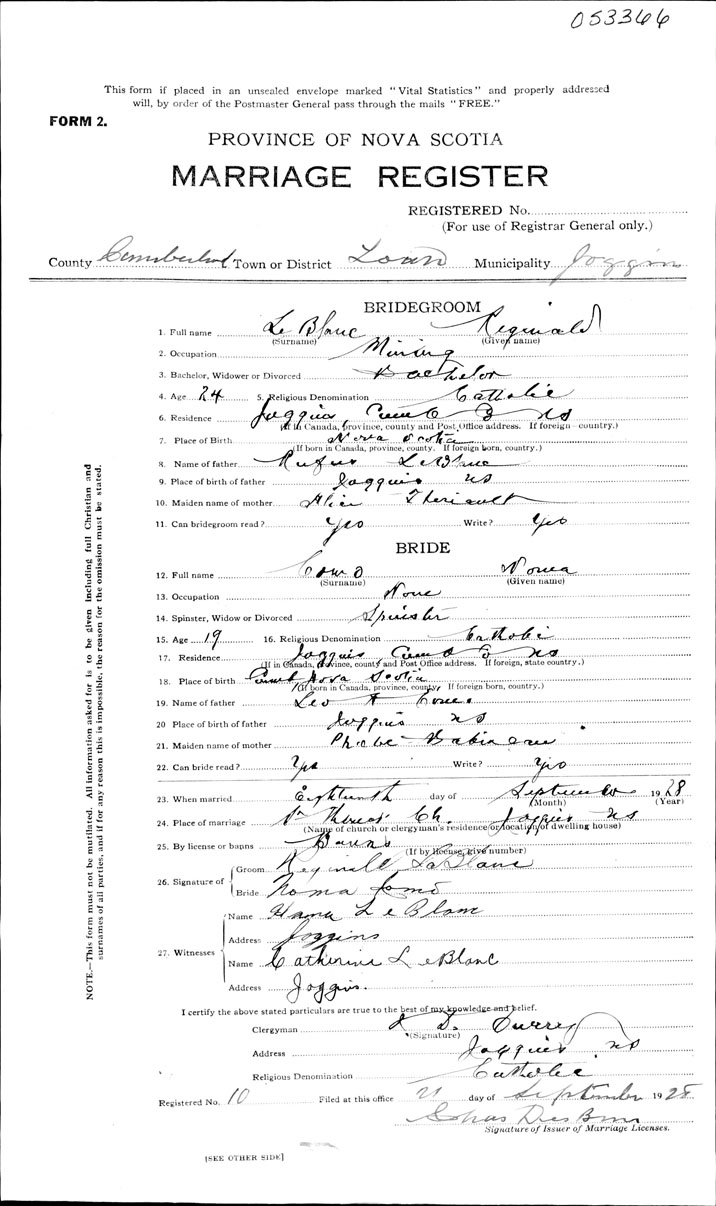 053366
This form if placed in an unsealed envelope marked "Vital Statistics" and properly addressed
will, by order of the Postmaster General pass through the mails "FREE."
FORM 2.
PROVINCE OF NOVA SCOTIA
MARRIAGE REGISTER
REGISTERED No.
(For use of Registrar General only.)
County Cumberland Town or District Town Municipality Joggins
BRIDEGROOM
1. Full name Le Blanc Reginald
(Surname) (Given name)
2. Occupation Mining
3. Bachelor, Widower or Divorced Bachelor
4. Age 24 5. Religious Denomination Catholic
6. Residence Joggins, Cumb Co NS
(If in Canada, province, county and Post Office address. If foreign country.)
7. Place of Birth Nova Scotia
(If born in Canada, province, county. If foreign born, country.)
8. Name of father Rufus LeBlanc
9. Place of birth of father Joggins NS
10. Maiden name of mother Alice Theriault
11. Can bridegroom read? Yes Write? Yes
BRIDE
12. Full name Como Norma
(Surname) (Given name)
13. Occupation None
14. Spinster, Widow or Divorced Spinster
15. Age 19 16. Religious Denomination Catholic
17. Residence Joggins Cumb Co NS
(If in Canada, province, county and Post Office address. If foreign, state country.)
18. Place of birth Cumb Nova Scotia
(If born in Canada, province, county, If foreign born, country.)
19. Name of father Leo
20 Place of birth of father Joggins NS
21. Maiden name of mother Phebe Babineau
22. Can bride read? Yes Write? Yes
23. When married Eighteenth day of September 1928
(Month) (Year)
24. Place of marriage Ch. Joggins NS
(Name of church or clergyman's residence or location of dwelling house)
25. By license or banns Banns
(If by license, give number)
26. Signature of Groom Reginald LeBlanc
Bride Norma Como
27. Witnesses Name LeBlanc
Address Joggins
Name Catherine LeBlanc
Address Joggins.
I certify the above stated particulars are true to the best of my knowledge and belief.
Clergyman D. Currey
(Signature)
Address Joggins NS
Religious Denomination Catholic
Registered No. 10 Filed at this office 21 day of September 1928
Chas
Signature of Issuer of Marriage Licenses.
[SEE OTHER SIDE]
NOTE.—This form must not be mutilated. All information asked for is to be given including full Christian and
surnames of all parties, and if for any reason this is impossible, the reason for the omission must be stated.